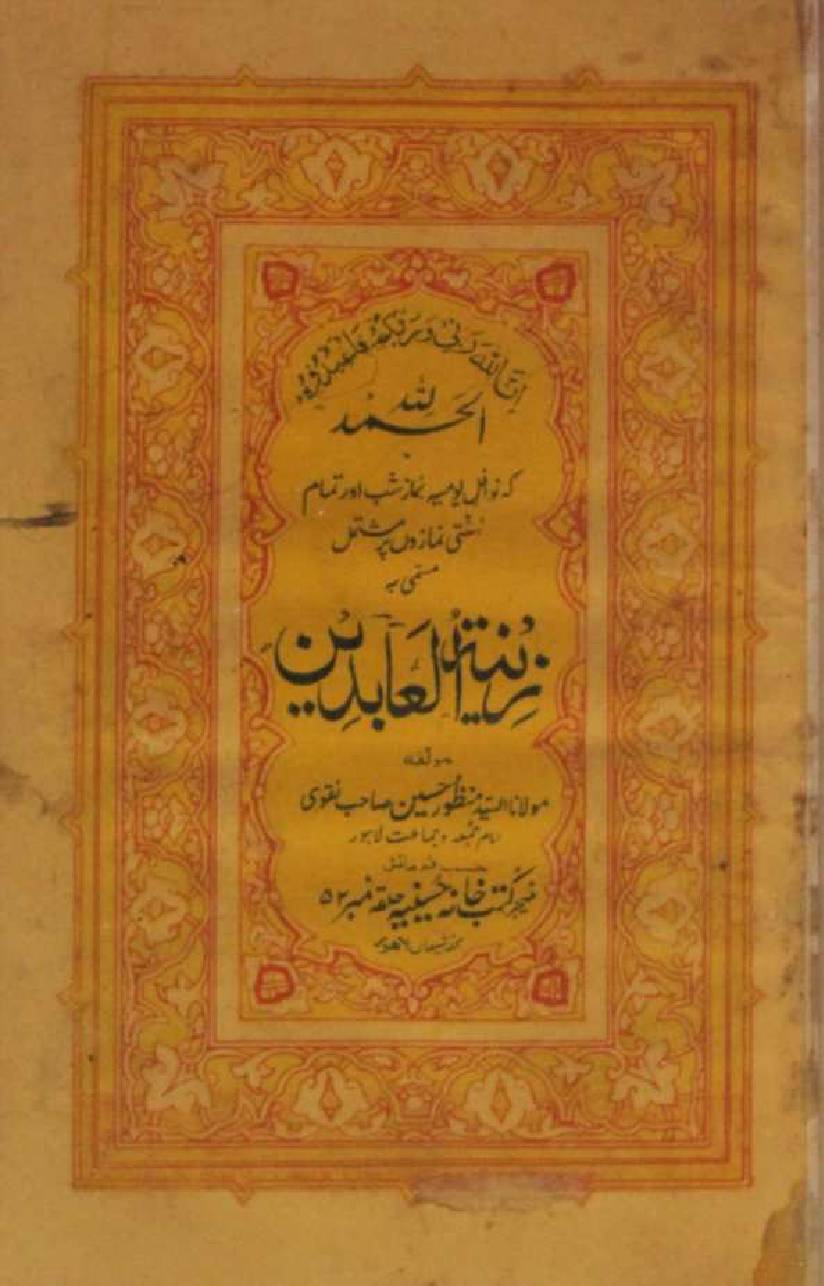 ان اللہ ربی وربکم فاعبدوہ
الحمد للہ
کہ نوافل یومیہ نماز شب اور تمام
سنتی نمازوں پر مشتمل
مسمی بہ
زینۃ العابدین
مولفہ
مولانا السید منظور حسین صاحب نقوی
امام جمعہ و جماعت لاہور
حسب فرمائش
منیجر کتب خانہ حسینیہ حلقہ نمبر ۵۲
لاہور